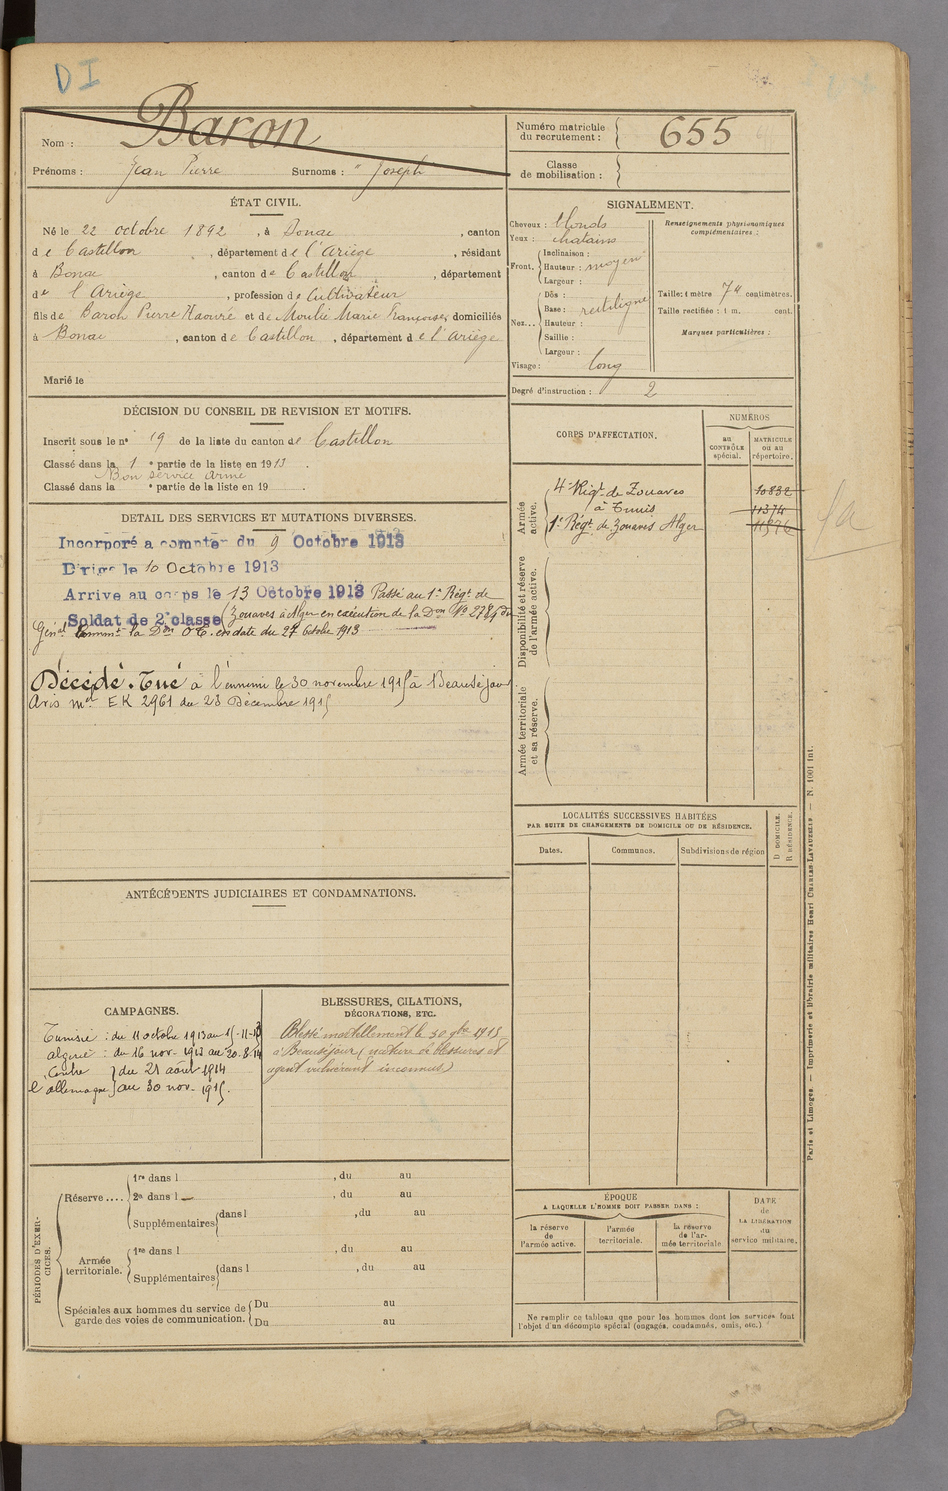 DI
Nom : Baron
Prénoms : Jean Pierre Surnoms : " Joseph
Numéro matricule du recrutement : 655
Classe de mobilisation :
ÉTAT CIVIL.
Né le 22 octobre 1892, à Bonac, canton
de Castillon, département de l'Ariège, résidant
à Bonac, canton de Castillon, département
de l'Ariège, profession de Cultivateur
fils de Baron Pierre et de Moulié Marie Françoise domiciliés
à Bonac, canton de Castillon, département de l'Ariège
Marié le
SIGNALEMENT.
Cheveux : blonds
Yeux : chatains
Front. Inclinaison :
Hauteur : moyen
Largeur :
Nez... Dos :
Base : rectiligne
Hauteur :
Saillie :
Largeur :
Visage : long
Renseignements physionomiques complémentaires :
Taille : 1 mètre 74 centimètres.
Taille rectifiée : 1 m. cent.
Marques particulières :
Degré d'instruction : 2
DÉCISION DU CONSEIL DE REVISION ET MOTIFS.
Inscrit sous le n° 19 de la liste du canton de Castillon
Classé dans la 1e partie de la liste en 1913.
Bon service armé
Classé dans la e partie de la liste en 19 .
DETAIL DES SERVICES ET MUTATIONS DIVERSES.
Incorporé à compter du 9 Octobre 1913
Dirigé le 10 Octobre 1913
Arrivé au corps le 13 Octobre 1913 Passé au 1er Régt de
Soldat de 2e classe (Zouaves à Alger en exécution de la Don No 2784 du
Génal Commt la Don O.T. en date du 27 octobre 1913
Décédé. Tué à l'ennemi le 30 novembre 1915 à Beauséjour
Avis mel EK 2961 du 23 Décembre 1915
CORPS D'AFFECTATION.
NUMÉROS
au CONTRÔLE spécial.
MATRICULE ou au répertoire.
Armée active.
4e Régt de Zouaves 10832
à Tunis 11374
1er Régt de Zouaves Alger
Disponibilité et réserve de l'armée active.
Armée territoriale et sa réserve.
LOCALITÉS SUCCESSIVES HABITÉES
PAR SUITE DE CHANGEMENTS DE DOMICILE OU DE RÉSIDENCE.
Dates.
Communes.
Subdivisions de région
D DOMICILE.
R RÉSIDENCE.
ANTÉCÉDENTS JUDICIAIRES ET CONDAMNATIONS.
CAMPAGNES.
Tunisie : du 11 octobre 1913 au 15-11-13
Algérie : du 16 nov- 1913 au 20-8-14
Contre } du 21 août 1914
l'allemagne } au 30 nov- 1915.
BLESSURES, CITATIONS,
DÉCORATIONS, ETC.
Blessé mortellement le 30 9bre 1915
à Beauséjour (nature de blessures et
agent vulnérant inconnus)
PÉRIODES D'EXERCICES.
Réserve.... 1re dans l , du au
2e dans l , du au
Supplémentaires dans l , du au
Armée territoriale. 1re dans l , du au
Supplémentaires dans l , du au
Spéciales aux hommes du service de garde des voies de communication. Du au
Du au
ÉPOQUE
A LAQUELLE L'HOMME DOIT PASSER DANS :
la réserve de l'armée active.
l'armée territoriale.
la réserve de l'armée territoriale
DATE de LA LIBÉRATION du service militaire.
Ne remplir ce tableau que pour les hommes dont les services font
l'objet d'un décompte spécial (engagés, condamnés, omis, etc.)
Paris et Limoges. — Imprimerie et librairie militaires Henri CHARLES-LAVAUZELLE — N. 1001 int.